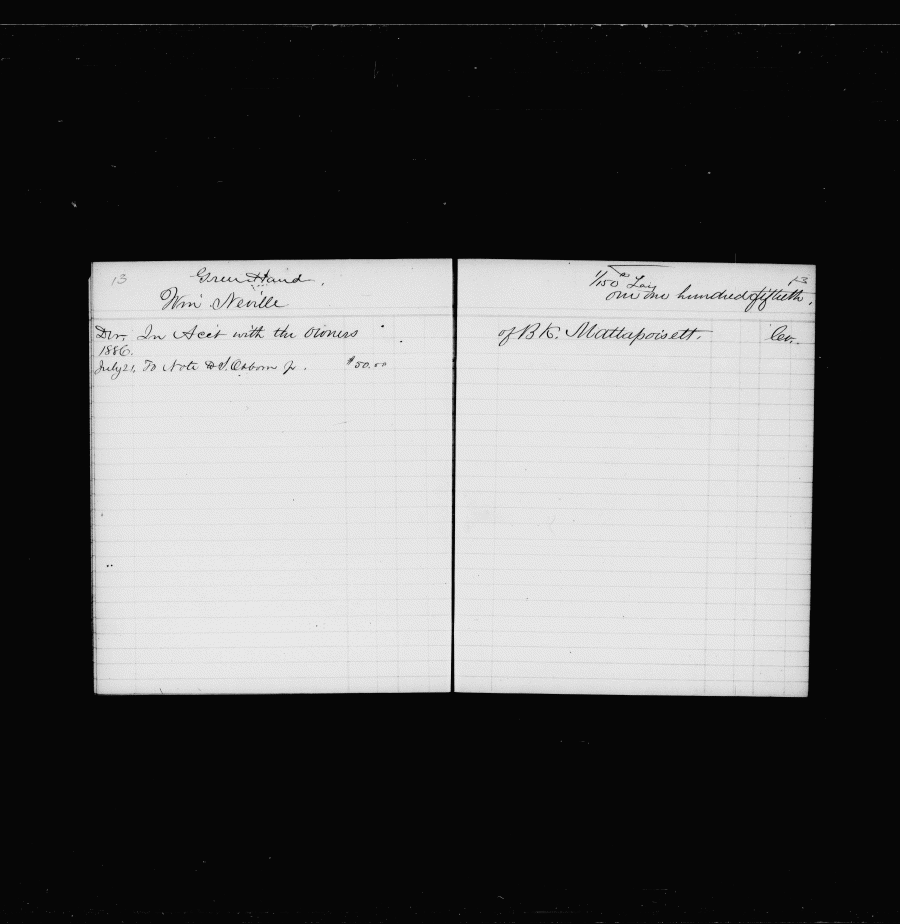 13
Green Hand.
Wm Neville
Dr. In Acct with the Owners
1886.
July 21, To Note D. J. Osborn Jr. $50.00
13
1/150th Lay
one one hundred fiftieth.
of B K. Mattapoisett. Cr.